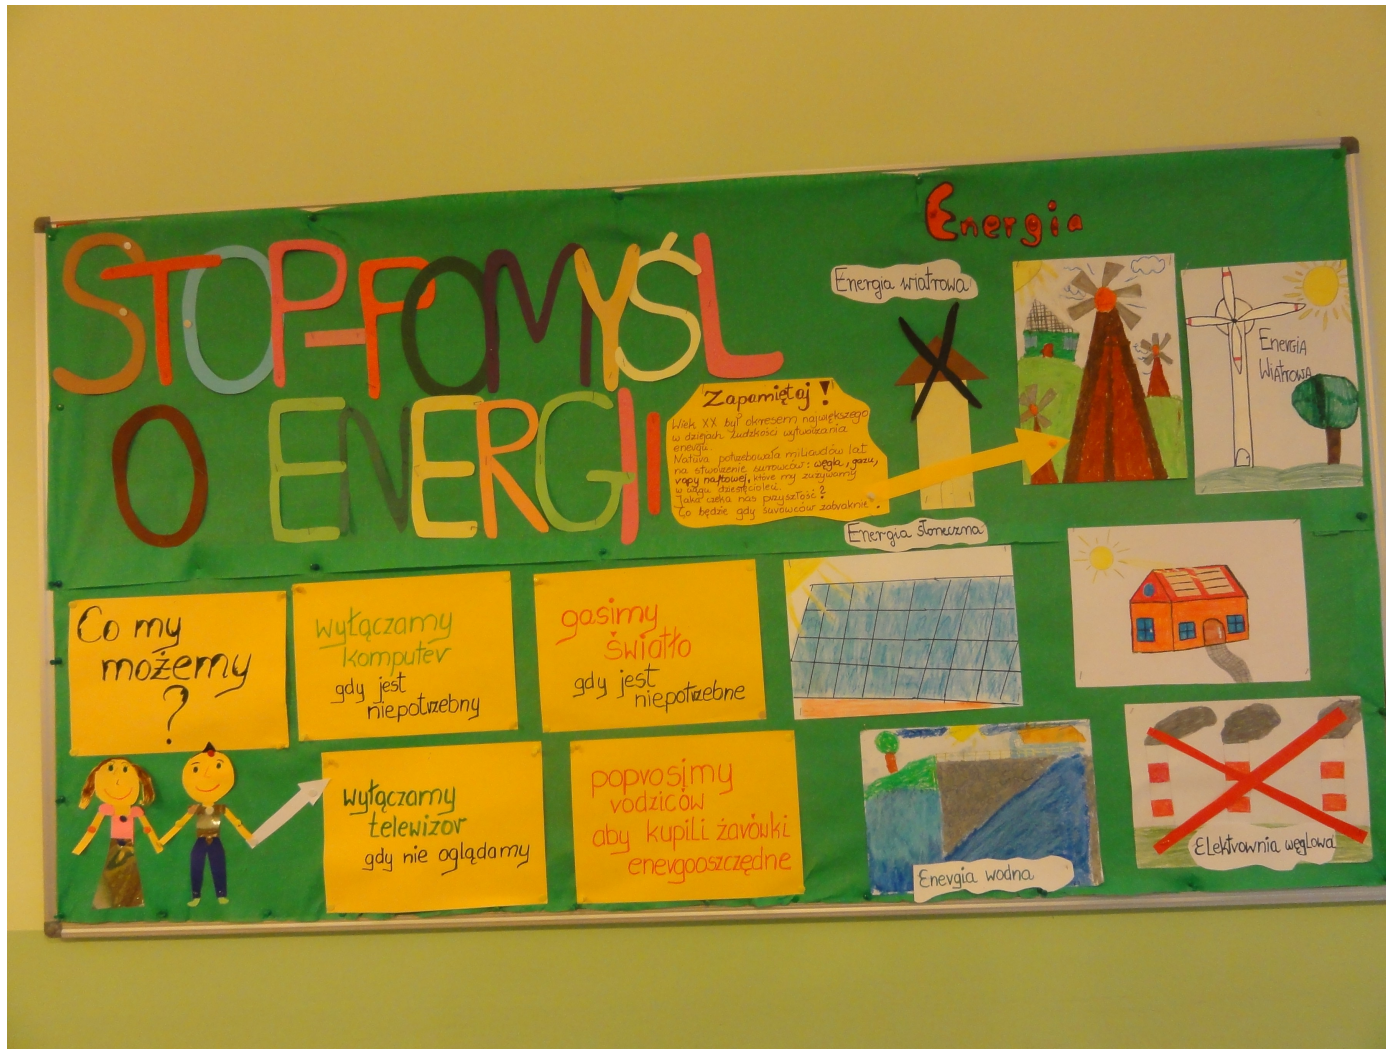 STOP-POMYŚL
O ENERGII
Energia
Energia wiatrowa
ENERGIA
WIATROWA
Zapamiętaj!
Wiek XX był okresem największego
w dziejach ludzkości wytwarzania
energii.
Natura potrzebowała miliardów lat
na stworzenie surowców: węgla, gazu,
ropy naftowej, które my zużywamy
w ciągu dziesięcioleci.
Jaka czeka nas przyszłość?
Co będzie gdy surowców zabraknie?
Energia słoneczna
Co my
możemy
?
wyłączamy
komputer
gdy jest
niepotrzebny
gasimy
światło
gdy jest
niepotrzebne
wyłączamy
telewizor
gdy nie oglądamy
poprosimy
rodziców
aby kupili żarówki
energooszczędne
Energia wodna
Elektrownia węglowa